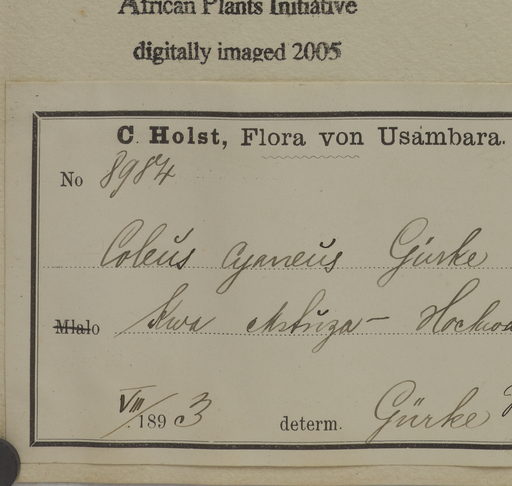 African Plants Initiative
digitally imaged 2005
C. Holst, Flora von Usambara.
No 8984
Coleus cyaneus Gürke
Mlalo Kwa Mstuza - Hochwa
VIII 1893 determ. Gürke